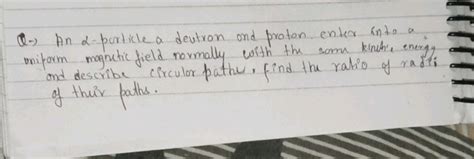 Q-> An α-particle a deutron and proton enter into a
uniform magnetic field normally with the same kinetic energy
and describe circular paths, find the ratio of radii
of their paths.